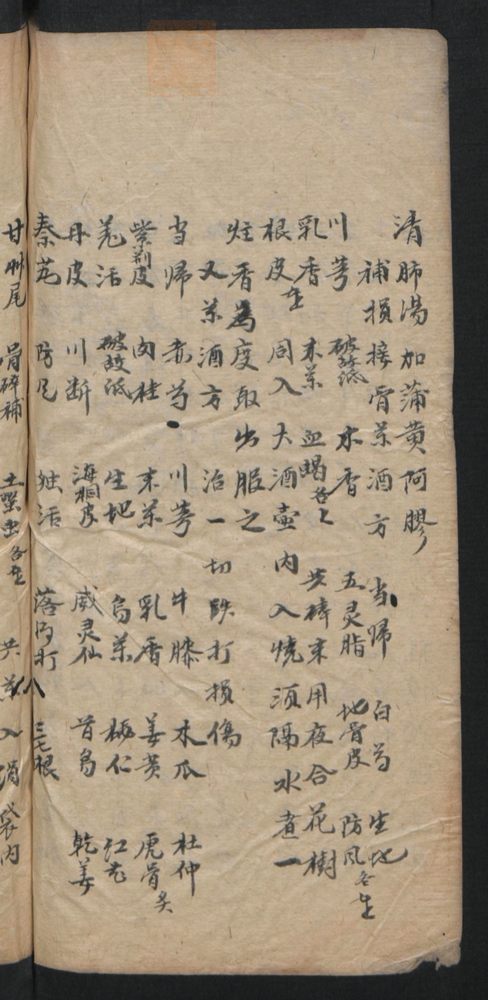 清肺湯加蒲黄阿膠
補損接骨茶酒方 当归 白芍 生地
川芎 破故纸 木香 五灵脂 地骨皮 防风各
乳香 末茶 血竭各 共棒末用夜合花樹
根皮 同入大酒壺内入燒須隔水煮一
炷香為度取出服之
又茶酒方 治一切跌打損傷
当歸 赤芍 川芎 牛膝 木瓜 杜仲
紫荆皮 肉桂 末茶 乳香 姜黄 虎骨炙
羌活 破故纸 生地 烏茶 桃仁 红花
丹皮 川断 海桐皮 威灵仙 首烏 乾姜
秦艽 防风 独活 落得打 三七根
甘艸尾 骨碎補 土鱉虫各 共 入绢袋内